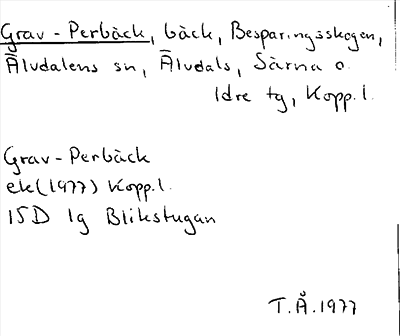 Grav-Perbäck, bäck, Besparingsskogen,
Älvdalens sn, Älvdals, Särna o.
Idre tg, Kopp.l.
Grav-Perbäck
ek(1977) Kopp.l.
15D 1g Blikstugan
T.Å.1977